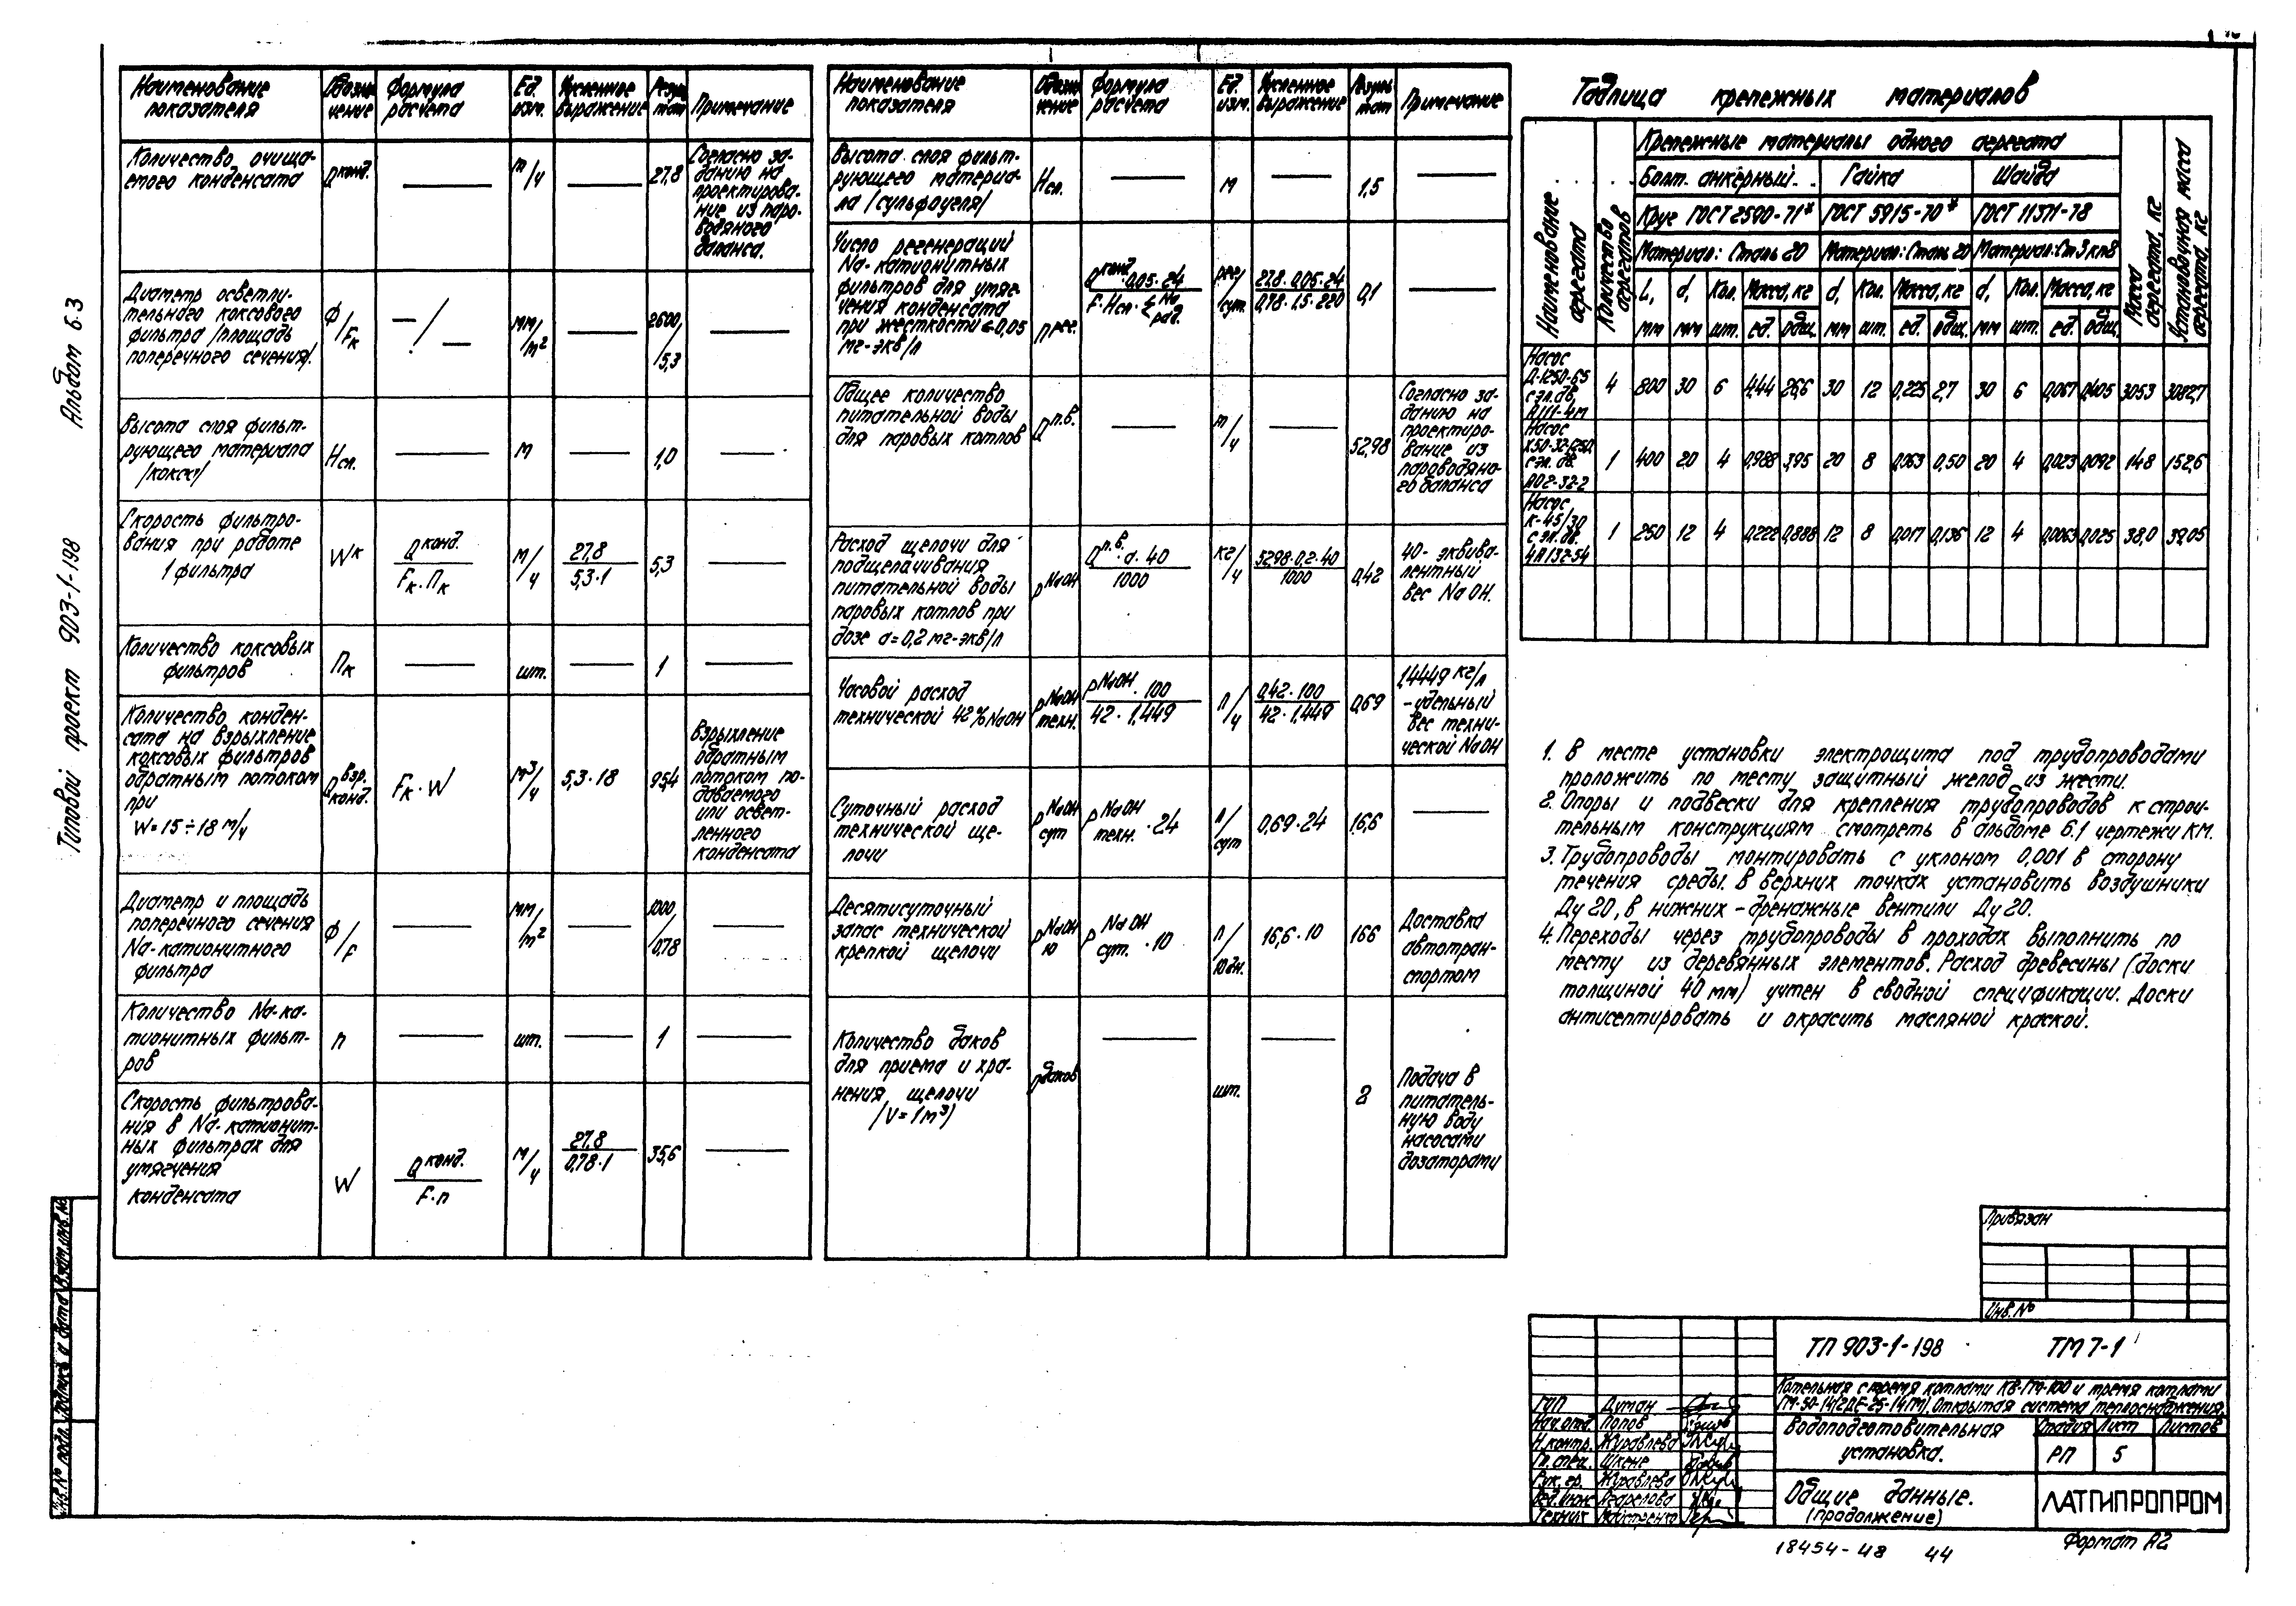 Альбом 6.3
Типовой проект 903-1-198
Наименование показателя | Обозначение | Формула расчета | Ед. изм. | Численное выражение | Результат | Примечание
Количество очища-
емого конденсата
Qконд.
т/ч
27,8
Согласно за-
данию на
проектирова-
ние из паро-
водяного
баланса.
Диаметр осветли-
тельного коксового
фильтра /площадь
поперечного сечения/.
Ф/Fк
—/—
мм/м²
2600/5,3
Высота слоя фильт-
рующего материала
/кокса/
Нсл.
м
1,0
Скорость фильтро-
вания при работе
1 фильтра
Wк
Qконд. / Fк·Пк
м/ч
27,8 / 5,3·1
5,3
Количество коксовых
фильтров
Пк
шт.
1
Количество конден-
сата на взрыхление
коксовых фильтров
обратным потоком
при
W=15÷18 м/ч
Qвзр.конд.
Fк·W
м³/ч
5,3·18
95,4
Взрыхление
обратным
потоком по-
даваемого
или освет-
ленного
конденсата
Диаметр и площадь
поперечного сечения
Na-катионитного
фильтра
Ф/F
мм/м²
1000/0,78
Количество Na-ка-
тионитных фильт-
ров
п
шт.
1
Скорость фильтрова-
ния в Na-катионит-
ных фильтрах для
умягчения
конденсата
W
Qконд. / F·п
м/ч
27,8 / 0,78·1
35,6
Наименование показателя | Обозначение | Формула расчета | Ед. изм. | Численное выражение | Результат | Примечание
Высота слоя фильт-
рующего материа-
ла /сульфоугля/
Нсл.
м
1,5
Число регенераций
Na-катионитных
фильтров для умяг-
чения конденсата
при жесткости ≤0,05
мг-экв/л
прег.
Qконд.·0,05·24 / F·Нсл.· Na раб.
рег/сут.
27,8·0,05·24 / 0,78·1,5·220
0,1
Общее количество
питательной воды
для паровых котлов
Qп.в.
т/ч
52,98
Согласно за-
данию на
проектиро-
вание из
пароводяно-
го баланса
Расход щелочи для
подщелачивания
питательной воды
паровых котлов при
дозе d=0,2 мг-экв/л
рNaOH
Qп.в.·d·40 / 1000
кг/ч
52,98·0,2·40 / 1000
0,42
40- эквива-
лентный
вес NaOH.
Часовой расход
технической 42% NaOH
рNaOH техн.
рNaOH·100 / 42·1,449
л/ч
0,42·100 / 42·1,449
0,69
1,4449 кг/л
-удельный
вес техни-
ческой NaOH
Суточный расход
технической ще-
лочи
рNaOH сут
рNaOH техн.·24
л/сут
0,69·24
16,6
Десятисуточный
запас технической
крепкой щелочи
рNaOH 10
рNaOH сут.·10
л/10дн.
16,6·10
166
Доставка
автотран-
спортом
Количество баков
для приема и хра-
нения щелочи
/V=1м³)
пбаков
шт.
2
Подача в
питатель-
ную воду
насосами
дозаторами
Таблица крепежных материалов
Наименование агрегата
Количество агрегатов
Крепежные материалы одного агрегата
Масса агрегата, кг
Установочная масса агрегата, кг
Болт анкерный | Гайка | Шайба
Круг ГОСТ 2590-71* | ГОСТ 5915-70* | ГОСТ 11371-78
Материал: Сталь 20 | Материал: Сталь 20 | Материал: Ст3кп8
L, мм | d, мм | Кол. шт. | Масса, кг ед. | общ. | d, мм | Кол. шт. | Масса, кг ед. | общ. | d, мм | Кол. шт. | Масса, кг ед. | общ.
Насос Д-1250-65 с эл.дв. | 4 | 800 | 30 | 6 | 4,44 | 26,6 | 30 | 12 | 0,225 | 2,7 | 30 | 6 | 0,067 | 0,405 | 3053 | 3082,7
Насос Х50-32-125 с эл.дв. АО2-32-2 | 1 | 400 | 20 | 4 | 0,988 | 3,95 | 20 | 8 | 0,063 | 0,50 | 20 | 4 | 0,023 | 0,092 | 148 | 152,6
Насос К-45/30 с эл.дв. 4А132-S4 | 1 | 250 | 12 | 4 | 0,222 | 0,888 | 12 | 8 | 0,017 | 0,136 | 12 | 4 | 0,0063 | 0,025 | 38,0 | 39,05
1. В месте установки электрощита под трубопроводами
проложить по месту защитный желоб из жести.
2. Опоры и подвески для крепления трубопроводов к строи-
тельным конструкциям смотреть в альбоме 6.1 чертежи КМ.
3. Трубопроводы монтировать с уклоном 0,001 в сторону
течения среды. В верхних точках установить воздушники
Ду20, в нижних - дренажные вентили Ду20.
4. Переходы через трубопроводы в проходах выполнить по
месту из деревянных элементов. Расход древесины (доски
толщиной 40мм) учтен в сводной спецификации. Доски
антисептировать и окрасить масляной краской.
Привязан
Инв.№
ТП 903-1-198 ТМ7-1
Котельная с тремя котлами КВ-ГМ-100 и тремя котлами
ГМ-50-14/(2ДЕ-25-14ГМ). Открытая система теплоснабжения.
ГИП Думан
Нач.отд. Попов
Н.контр. Журавлева
Гл.спец. Шкене
Рук.гр. Журавлева
Вед.инж.
Техник
Водоподготовительная
установка.
Стадия | Лист | Листов
РП | 5
Общие данные.
(продолжение)
ЛАТГИПРОПРОМ
18454-48 44
Формат А2
Инв.№ подл. Подпись и дата Взам.инв.№